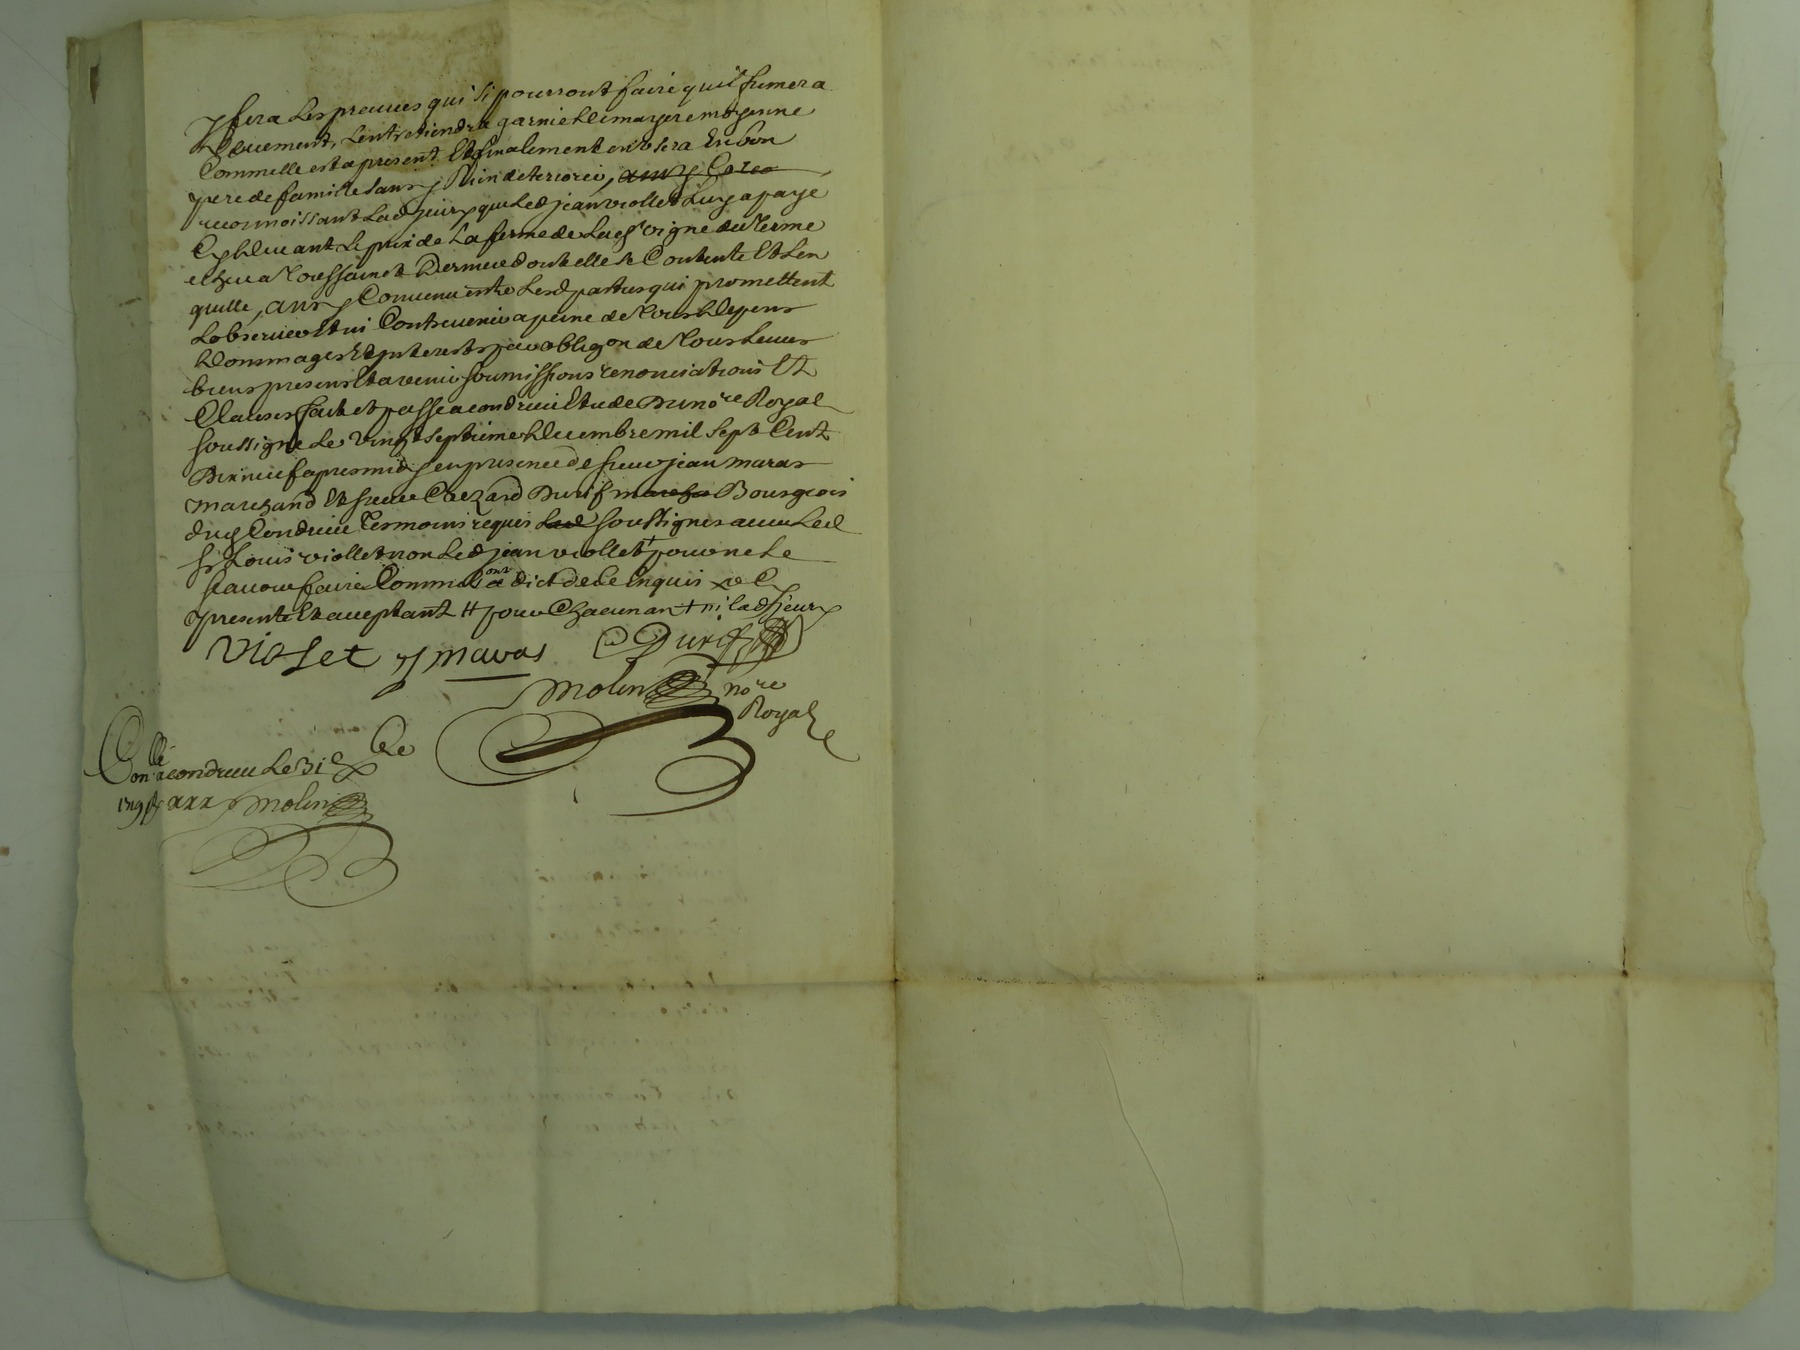 y fera les preuves qui si pourront faire quil fumera
deuement, lentretiendra garnie de mayere moyenne
Comme elle est a present Et finalement en usera En bon
pere de famille sans y Rien deteriorer,
reconnoissant lad sieur que led jean viollet luy a paye
Cy devant le prix de la ferme de lad vigne du Terme
echeu a Toussainct dernier dont elle se Contente Et len
quitte, ainsy Convenu entre lesd parties qui promettent
lobserver Et ni Contrevenir a peine de Tous depens
dommages Et interests par obligon de Tous leurs
biens presens Et avenir soumissions renonciations Et
Clauses fait et passe a condrieu Etude Du nore Royal
soussigne Le vingt septieme decembre mil sept Cent
Dix neuf apres midy en presence de sieur jean maras
marchand Et sieur Cezard Durif Bourgeois
dud Condrieu Tesmoins requis soussignes avec led
sr Louis viollet non led jean viollet + pour ne le
scavoir faire Comme ont dict de ce Enquis
presente Et acceptant # pour Chacun an + ni lad sieur
viollet J maras C Durif
Molin nore
Royal
Conllé a condrieu Le 31e Xbre
1719 R xxx s Molin